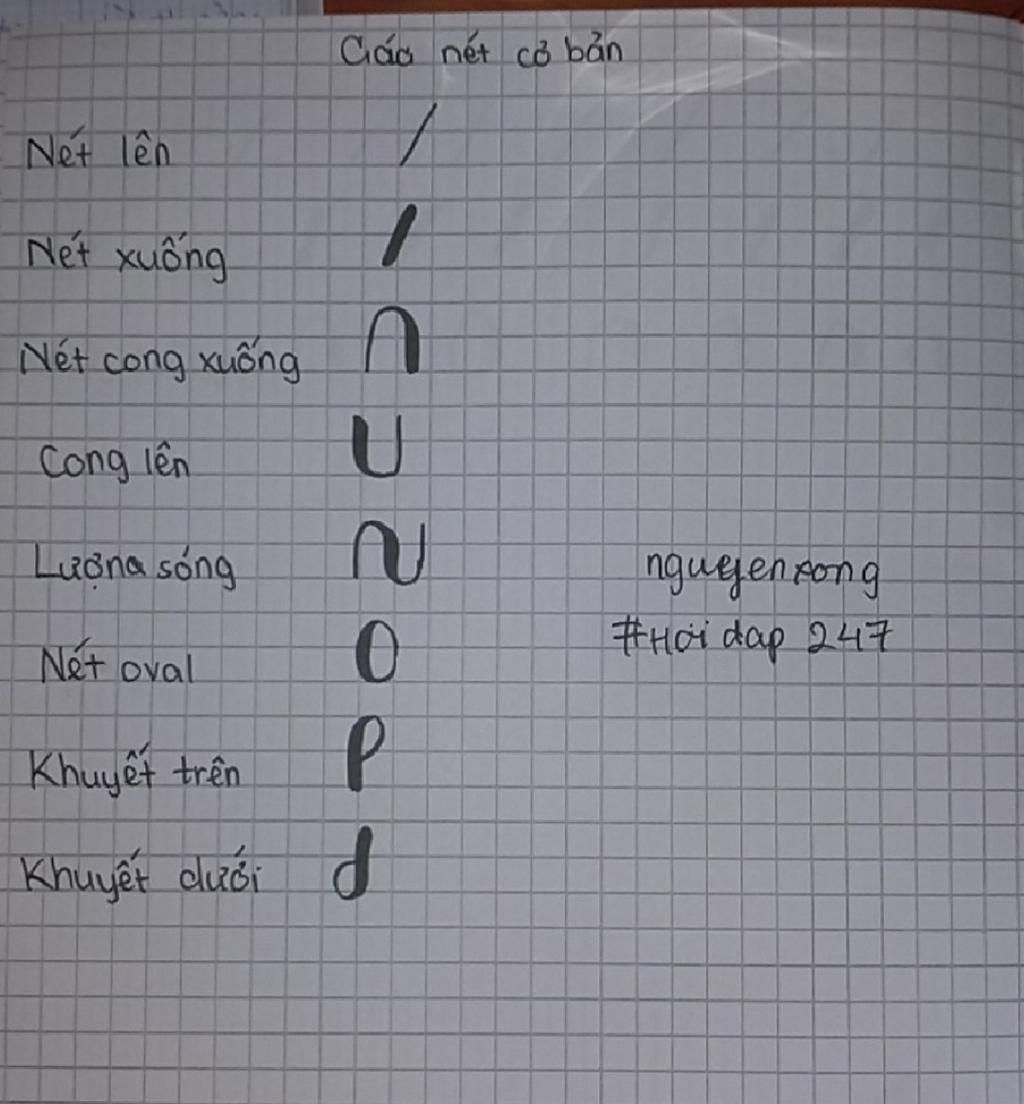 Các nét cơ bản
Nét lên /
Nét xuống /
Nét cong xuống
Cong lên
Lượng sóng
Nét oval
Khuyết trên
Khuyết dưới
nguyenxong
#Hoi dap 247